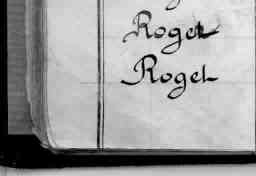 Roget
Rogel